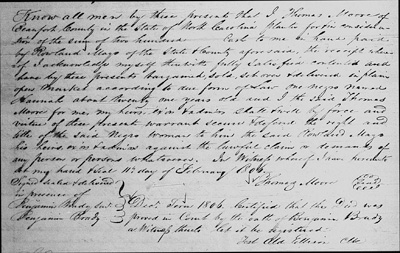 Know all men by these presents that I Thomas Moore of
Beaufort County in the State of North Carolina Planter for & in consideration
of the sum of two hundred Cash to me in hand paid
by Rowland Mayo of the State & County aforesaid, the receipt whereof
I acknowledge myself therewith fully satisfied contented and
have by these presents bargained, sold, set over & delivered in plain
open Market according to due form of Law one negro named
Hannah about twenty one years old and I the said Thomas
Moore for me my heirs &
virtue of these present warrant, secure & defend the right and
title of the said Negro Woman to him the said Rowland Mayo
his heirs against the lawful claim or demands of
any person or persons whatsoever. In Witness whereof I have hereunto
set my hand & Seal 11th day of February 1806
Signed sealed & delivered Thomas Moore
in presence of
Benjamin Brady
Benjamin Brady
Decr. Term 1806. Certified that this Deed was
proved in Court by the oath of Benjamin Brady
a Witness thereto let it be registered
Test Clk